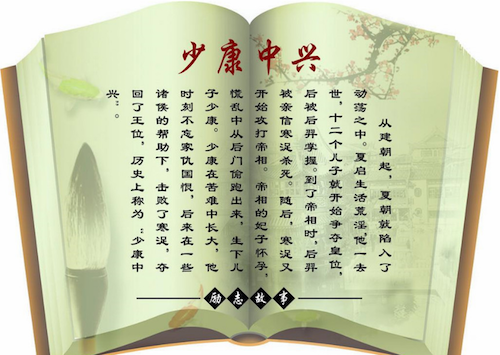 少康中兴
从建朝起，夏朝就陷入了
动荡之中。夏启生活荒淫，他一去
世，十二个儿子就开始争夺皇位，
后被后羿掌握。到了帝相时，后羿
被亲信寒浞杀死。随后，寒浞又
开始攻打帝相。帝相的妃子怀孕，
慌乱中从后门偷跑出来，生下儿
子少康。少康在苦难中长大，他
时刻不忘家仇国恨，后来在一些
诸侯的帮助下，击败了寒浞，夺
回了王位，历史上称为：“少康中
兴”。
励志故事